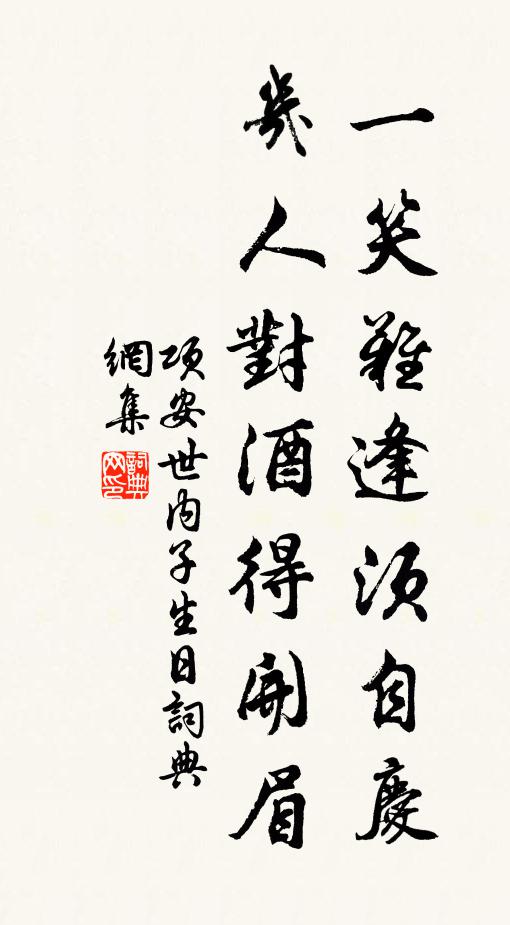 一笑難逢須自慶
幾人對酒得開眉
項安世內子生日詞典
網集
詞典
網印